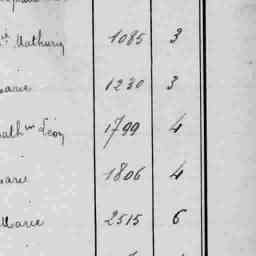 Mathurin 1085 3
Marie 1230 3
Math.ⁿ Léon 1799 4
Marie 1806 4
Marie 2515 6